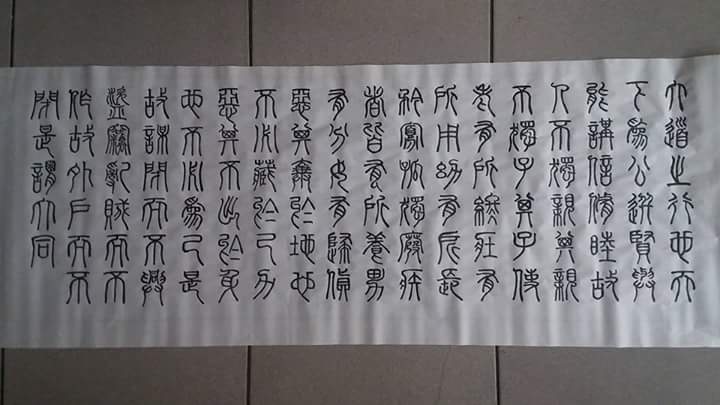 大道之行也天
下為公選賢與
能講信脩睦故
人不獨親其親
不獨子其子使
老有所終壯有
所用幼有所長
矜寡孤獨廢疾
者皆有所養男
有分女有歸貨
惡其棄於地也
不必藏於己力
惡其不出於身
也不必為己是
故謀閉而不興
盜竊亂賊而不
作故外戶而不
閉是謂大同